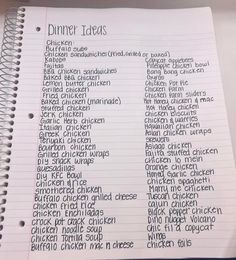 Dinner Ideas
Chicken:
Buffalo subs
Chicken sandwiches (fried, grilled or baked)
Kabobs
Fajitas
BBQ chicken sandwiches
Baked BBQ chicken
Lemon butter chicken
Grilled chicken
Fried chicken
Baked chicken (marinade)
Stuffed chicken
Jerk chicken
Garlic herb chicken
Italian chicken
Greek chicken
Teriyaki chicken
Bourbon chicken
Grilled chicken wraps
DIY snack wraps
Quesadillas
DIY KFC Bowl
Chicken & rice
Smothered chicken
Buffalo chicken grilled cheese
Chicken fried rice
Chicken enchiladas
Crock pot crack chicken
Chicken noodle soup
Chicken tortilla soup
Buffalo chicken mac n cheese
Copycat applebees
Pineapple chicken bowl
Bang bang chicken
Chicken Pot Pie
Chicken Parm
Chicken Parm sliders
Hot Honey chicken & mac
Hot Honey chicken
Chicken biscuits
Chicken & waffles
Hawaiian chicken
Asian chicken wraps
Asiago chicken
Fajita stuffed chicken
Chicken lo mein
Orange chicken
Honey garlic chicken
Chicken spaghetti
Marry me chicken
Tuscan chicken
Cajun chicken
Black pepper chicken
Dino nugget volcano
Chic fil a copycat
Wings
Chicken foils